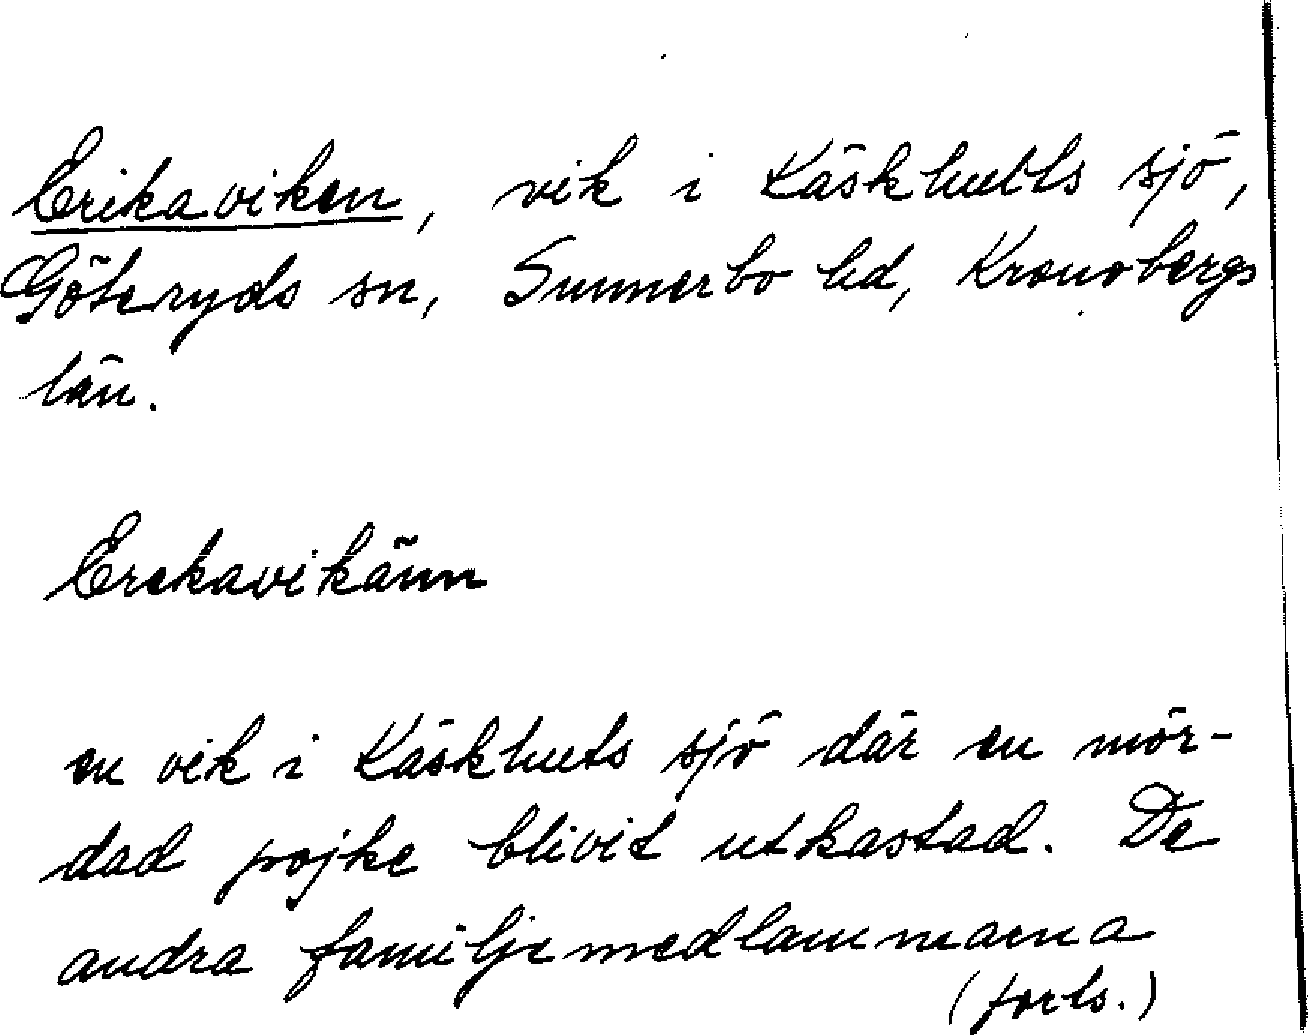 Erikaviken, vik i Käskhults sjö,
Göteryds sn, Sunnerbo hd, Kronobergs
län.
Erekavikänn
en vik i Käskhults sjö där en mör-
dad pojke blivit utkastad. De
andra familjemedlammarna
(forts.)